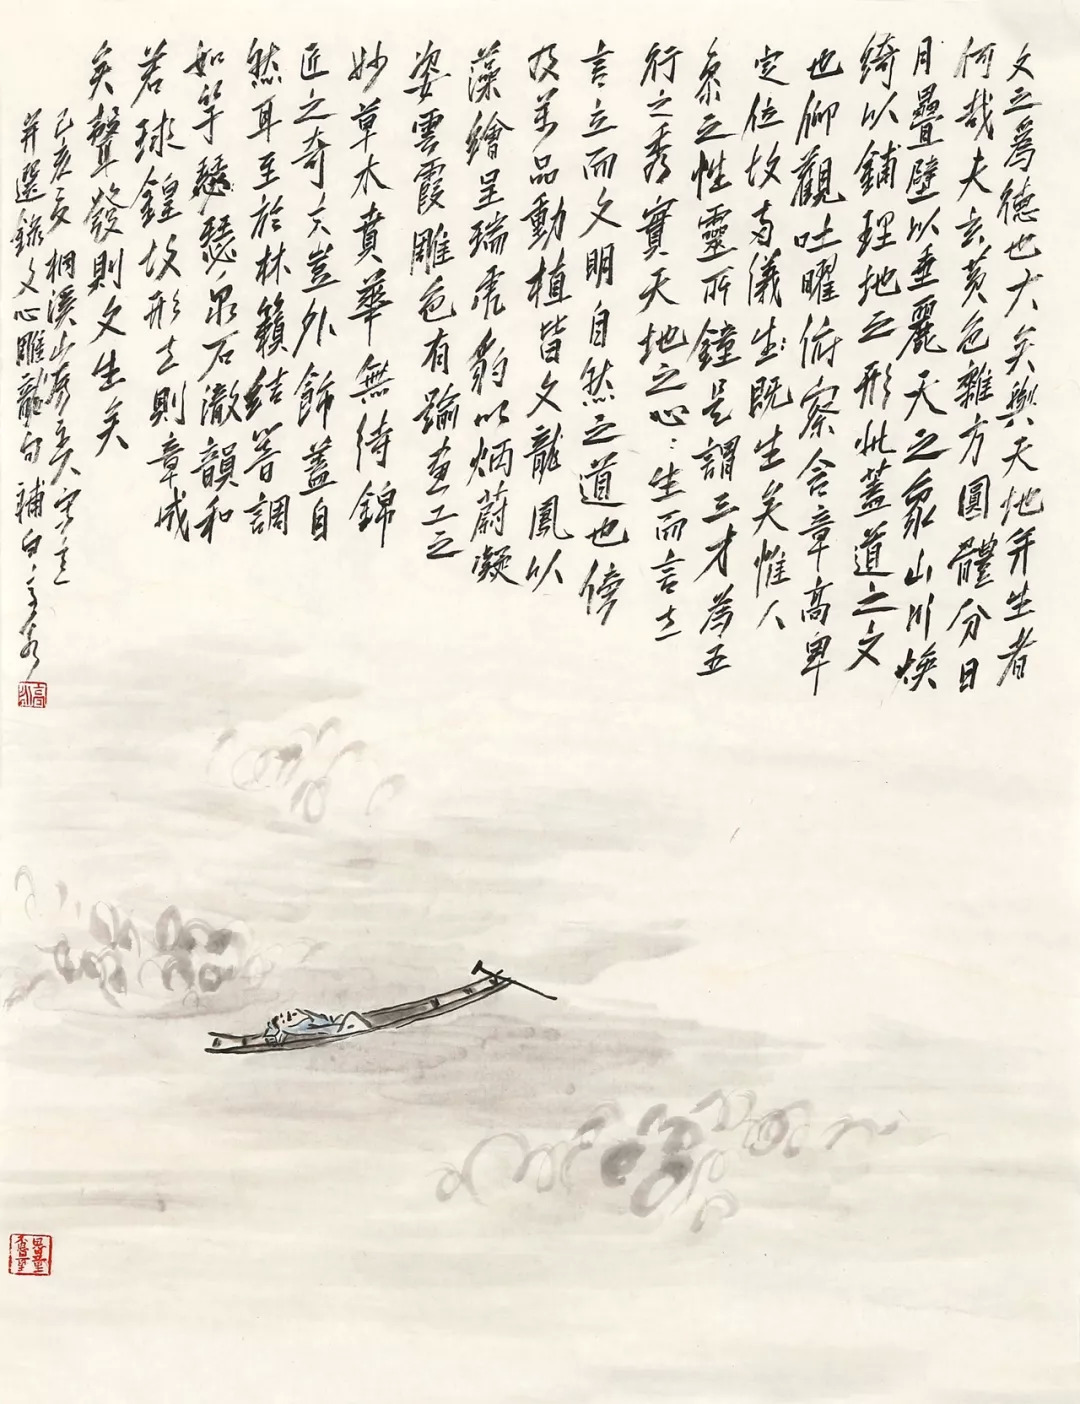 文之為德也大矣與天地并生者
何哉夫玄黃色雜方圓體分日
月疊璧以垂麗天之象山川煥
綺以鋪理地之形此蓋道之文
也仰觀吐曜俯察含章高卑
定位故兩儀生:既生矣惟人
參之性靈所鐘是謂三才為五
行之秀實天地之心:生而言立
言立而文明自然之道也傍
及萬品動植皆文龍鳳以
藻繪呈瑞虎豹以炳蔚凝
姿雲霞雕色有踰畫工之
妙草木賁華無待錦
匠之奇夫豈外飾蓋自
然耳至於林籟結響調
如竽瑟泉石激韻和
若球鍠故形立則章成
矣聲發則文生矣
己亥夏桐溪山
并選錄文心雕龍句補白